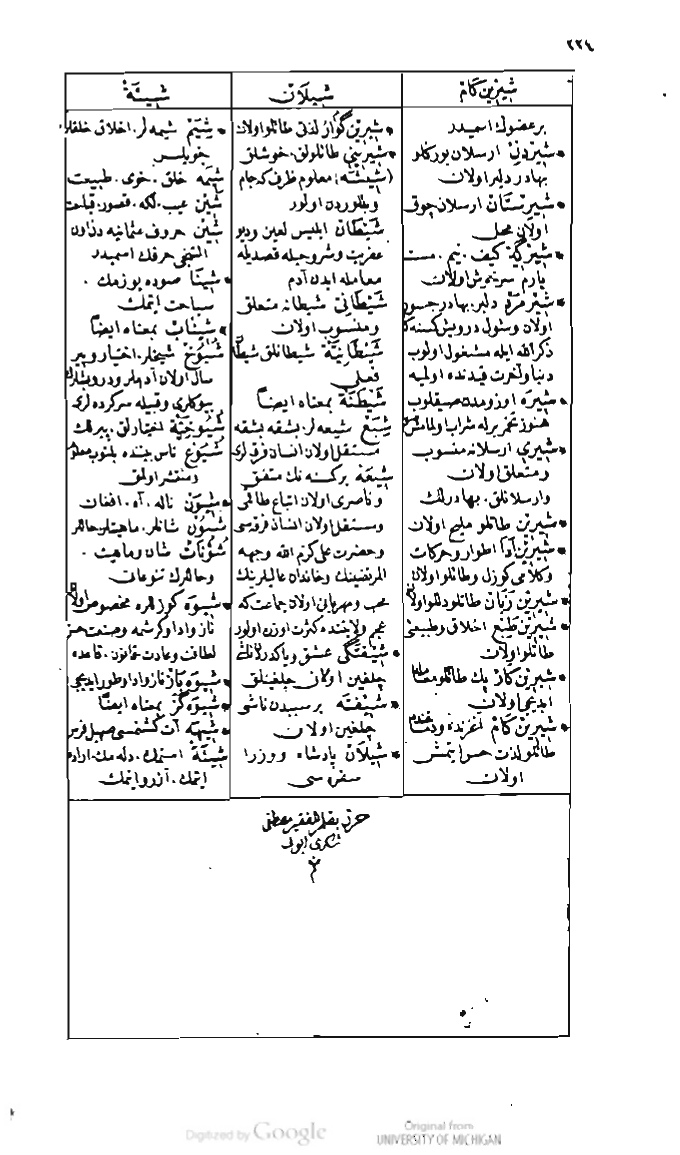 ٢٢٤
شیرین کام
بر عضوك اسمیدر
* شیردل ارسلان یورکلو
بهادر دلیر اولان
* شیرستان ارسلان چوق
اولان محل
* شیرگیر کیف، نیم، مست
یارم سرخوش اولان
* شیرمرد دلیر، بهادر جسور
اولان وسئول درویش کمسنه که
ذکر الله ایله مشغول اولوب
دنیا و آخرت قیدنده اولمیه
* شیره اوزومدن صیقلوب
هنوز تخمر برله شراب اولمامش
شیری ارسلانه منسوب
ومتعلق اولان
وارسلانلق، بهادرلك
* شیرین طاتلو ملیح اولان
* شیرین ادا اطوار و حرکات
وکلامی کوزل وطاتلو اولان
* شیرین زبان طاتلو دللو اولان
* شیرین طبع اخلاق وطبیعتی
طاتلو اولان
* شیرین کار پك طاتلو معامله
ایدیجی اولان
* شیرین کام
طاتلو لذت حس ایتمش
اولان
شیلان
* شیرین گوار لذتی طاتلو اولان
* شیرینی طاتلولق، خوشلق
(شیشه) معلوم ظرف که جام
وبللوردن اولور
شیطان ابلیس لعین ودیو
عفریت وشر وحیله قصدیله
معامله ایدن آدم
شیطانی شیطانه متعلق
ومنسوب اولان
شیطانیة شیطانلق شیطان
فعلی
شیطنة بمعناه ایضاً
شیع شیعه لر، بشقه بشقه
مستقل اولان انسان فرقه لری
شیعه بر کمسنه نك متفق
وناصری اولان اتباع طاقمی
ومستقل اولان انسان فرقه سی
وحضرت علی کرم الله وجهه
المرتضینك وخاندان عالیلرینك
محب ومهربانی اولان جماعت که
عجم ولایتنده کثرت اوزره اولور
* شیفتگی عشق ویا کدر لانك
چلغین اولان چلغینلق
* شیفته بر سببدن ناشی
چلغین اولان
* شیلان پادشاه ووزرا
سفره سی
شیئة
* شیم شیمه لر، اخلاق خلقلر
خویلر
شیمه خلق، خوی، طبیعت
شین عیب، لکه، قصور، قباحت
شین حروف عثمانیه دن اون
التنجی حرفك اسمیدر
* شینا صوده یوزمك،
سباحت ایتمك
* شیناب بمعناه ایضاً
شیوخ شیخلر، اختیار وپیر
سال اولان آدملر ودرویشلرك
بیوکلری وقبیله سرکرده لری
شیوخیة اختیارلق، پیرلك
شیوع ناس بیننده بلنوب معلوم
ومنتشر اولمق
* شیون ناله، آه، افغان
شئون شانلر، ماهیتلر، حاللر
شؤنات شان وماهیت،
وحاللرك تنوعات
* شیوه کوزللره مخصوص اولان
ناز وادا وکرشمه وصنعت حسن
لطافت وعادت قانون، قاعده
* شیوه باز ناز وادا وطور ایدیجی
* شیوه گر بمعناه ایضاً
* شیهه آت کشنمسی صهیل فرس
شیئة استمك، دله مك، اراده
ایتمك، آرزو ایتمك
حرر بقلم الفقیر مصطفی
شکری ایوبی
م
Digitized by Google
Original from
UNIVERSITY OF MICHIGAN